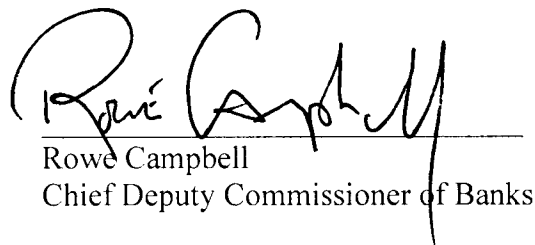 Rowé Campbell
Rowe Campbell
Chief Deputy Commissioner of Banks